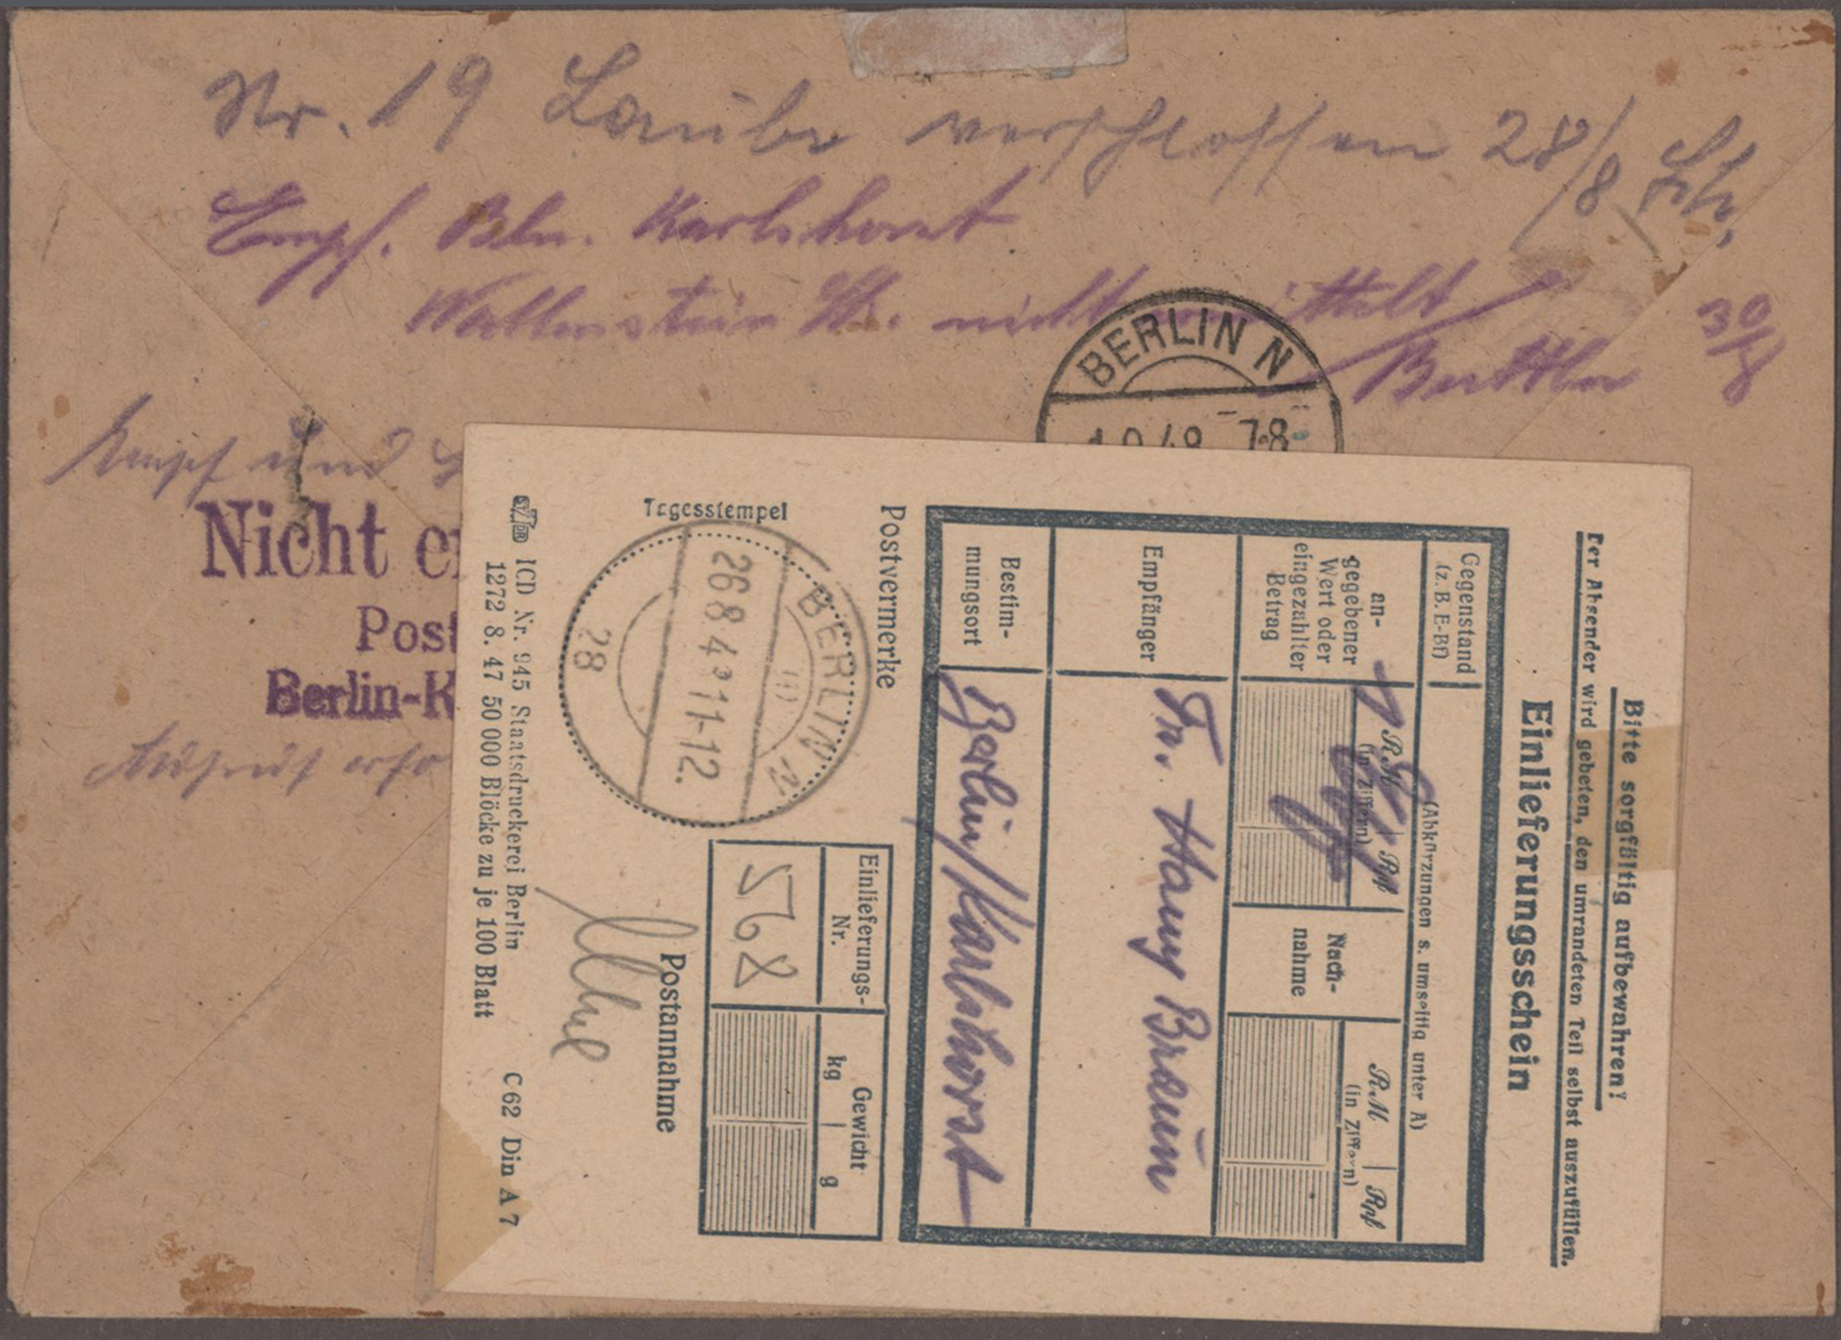 Nr. 19 Laube verschlossen 28/8
Empf. Bln. Karlshorst
Wallenstein Str. nicht
30/8
BERLIN N
7-8
Empf und
Nicht
Post
Berlin-K
Bitte sorgfältig aufbewahren!
Der Absender wird gebeten, den umrandeten Teil selbst auszufüllen.
Einlieferungsschein
Gegenstand
(z. B. E-Bf)
(Abkürzungen s. umseitig unter A)
an-
gegebener
Wert oder
eingezahlter
Betrag
RM | Rpf
(in Ziffern)
Nach-
nahme
RM | Rpf
(in Ziffern)
Empfänger
Fr. Hany Braun
Bestim-
mungsort
Berlin/Karlshorst
Postvermerke
Tagesstempel
BERLIN N
26.8.48 11-12.
28
Einlieferungs-
Nr.
568
Gewicht
kg | g
Postannahme
ICD Nr. 945 Staatsdruckerei Berlin
1272 8. 47 50 000 Blöcke zu je 100 Blatt
C 62 Din A 7